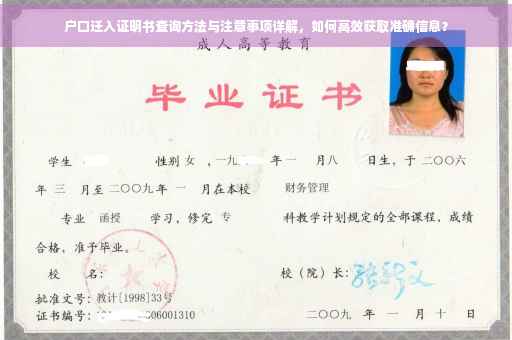 户口迁入证明书查询方法与注意事项详解，如何高效获取准确信息？
成人高等教育
毕业证书
学生 性别 女 ，一九 年 一 月 八 日生，于 二〇〇六
年 三 月至 二〇〇九 年 一 月在本校 财务管理
专业 函授 学习，修完 专 科教学计划规定的全部课程，成绩
合格，准予毕业。
校 名： 校（院）长：
批准文号：教计[1998]33号
证书编号： 06001310 二〇〇九 年 一 月 十 日